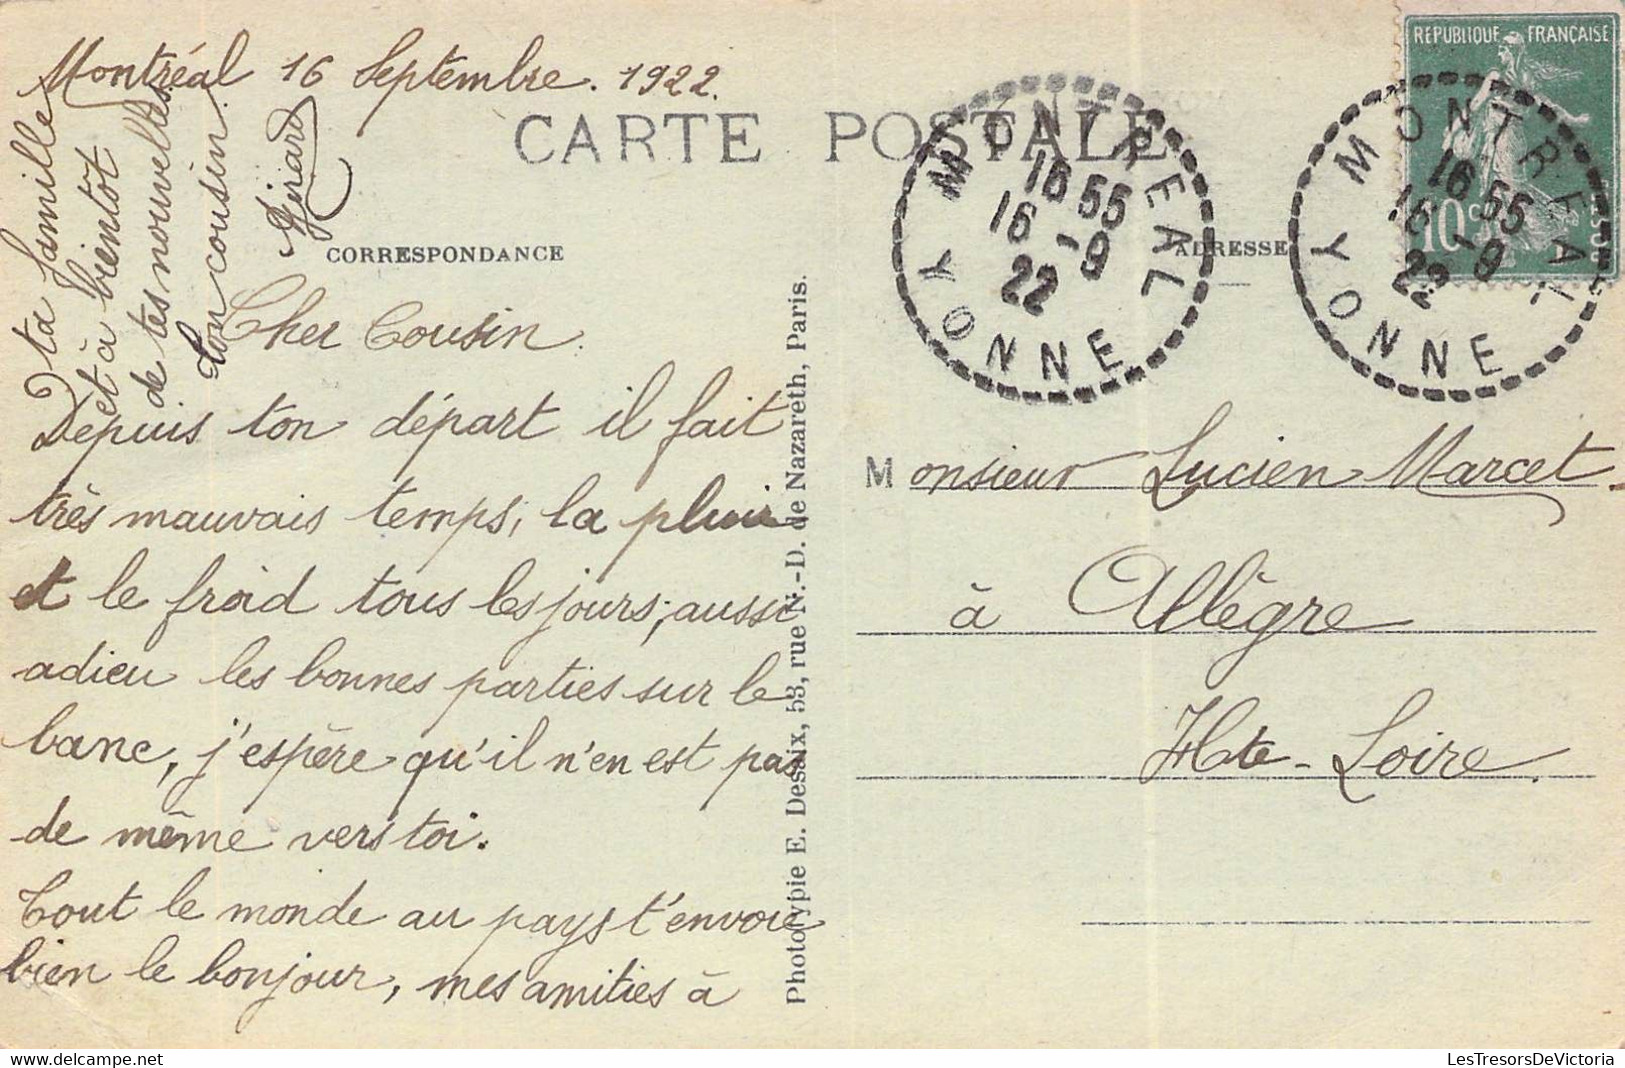 Montréal 16 Septembre. 1922.
CARTE POSTALE
CORRESPONDANCE
ADRESSE
Cher Cousin.
Depuis ton départ il fait
très mauvais temps, la pluie
et le froid tous les jours, aussi
adieu les bonnes parties sur le
banc, j'espère qu'il n'en est pas
de même vers toi.
Tout le monde au pays t'envoie
bien le bonjour, mes amitiés à
ta famille
et à bientôt
de tes nouvelles.
Ton cousin.
Girard
Phototypie E. Desaix, 53, rue N.-D. de Nazareth, Paris.
MONTREAL
16 55
16 -9
22
YONNE
RÉPUBLIQUE FRANÇAISE
10 c
MONTREAL
16 55
16 -9
22
YONNE
Monsieur Lucien Marcet.
à Allègre
Hte-Loire.
LesTresorsDeVictoria